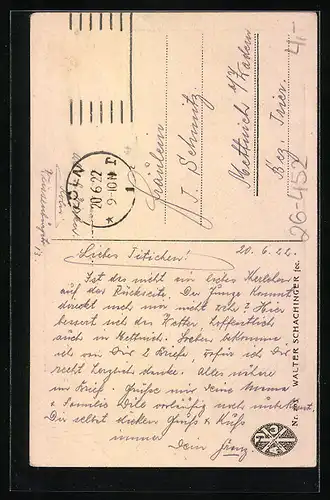 MÜNCHEN
20.6.22
9-10 V
1
Fräulein
T. Schmitz
Mettnich b/ Wadern
Bez. Trier.
26-452
4,-
20.6.22.
Liebes Titichen!
Ist das nicht ein
auf der Rückseite. Der Junge kommt
direkt nach mir nicht wahr? Hier
bessert sich das Wetter, hoffentlich
auch in Mettnich. Soeben bekomme
ich von Dir 2 Briefe, wofür ich Dir
recht herzlich danke. Alles nähere
im Brief. Grüße mir Deine Mama
& Familie vorläufig noch unbekannt.
Dir selbst dicken Gruß & Kuß
immer
Dein Franz.
WALTER SCHACHINGER fec.